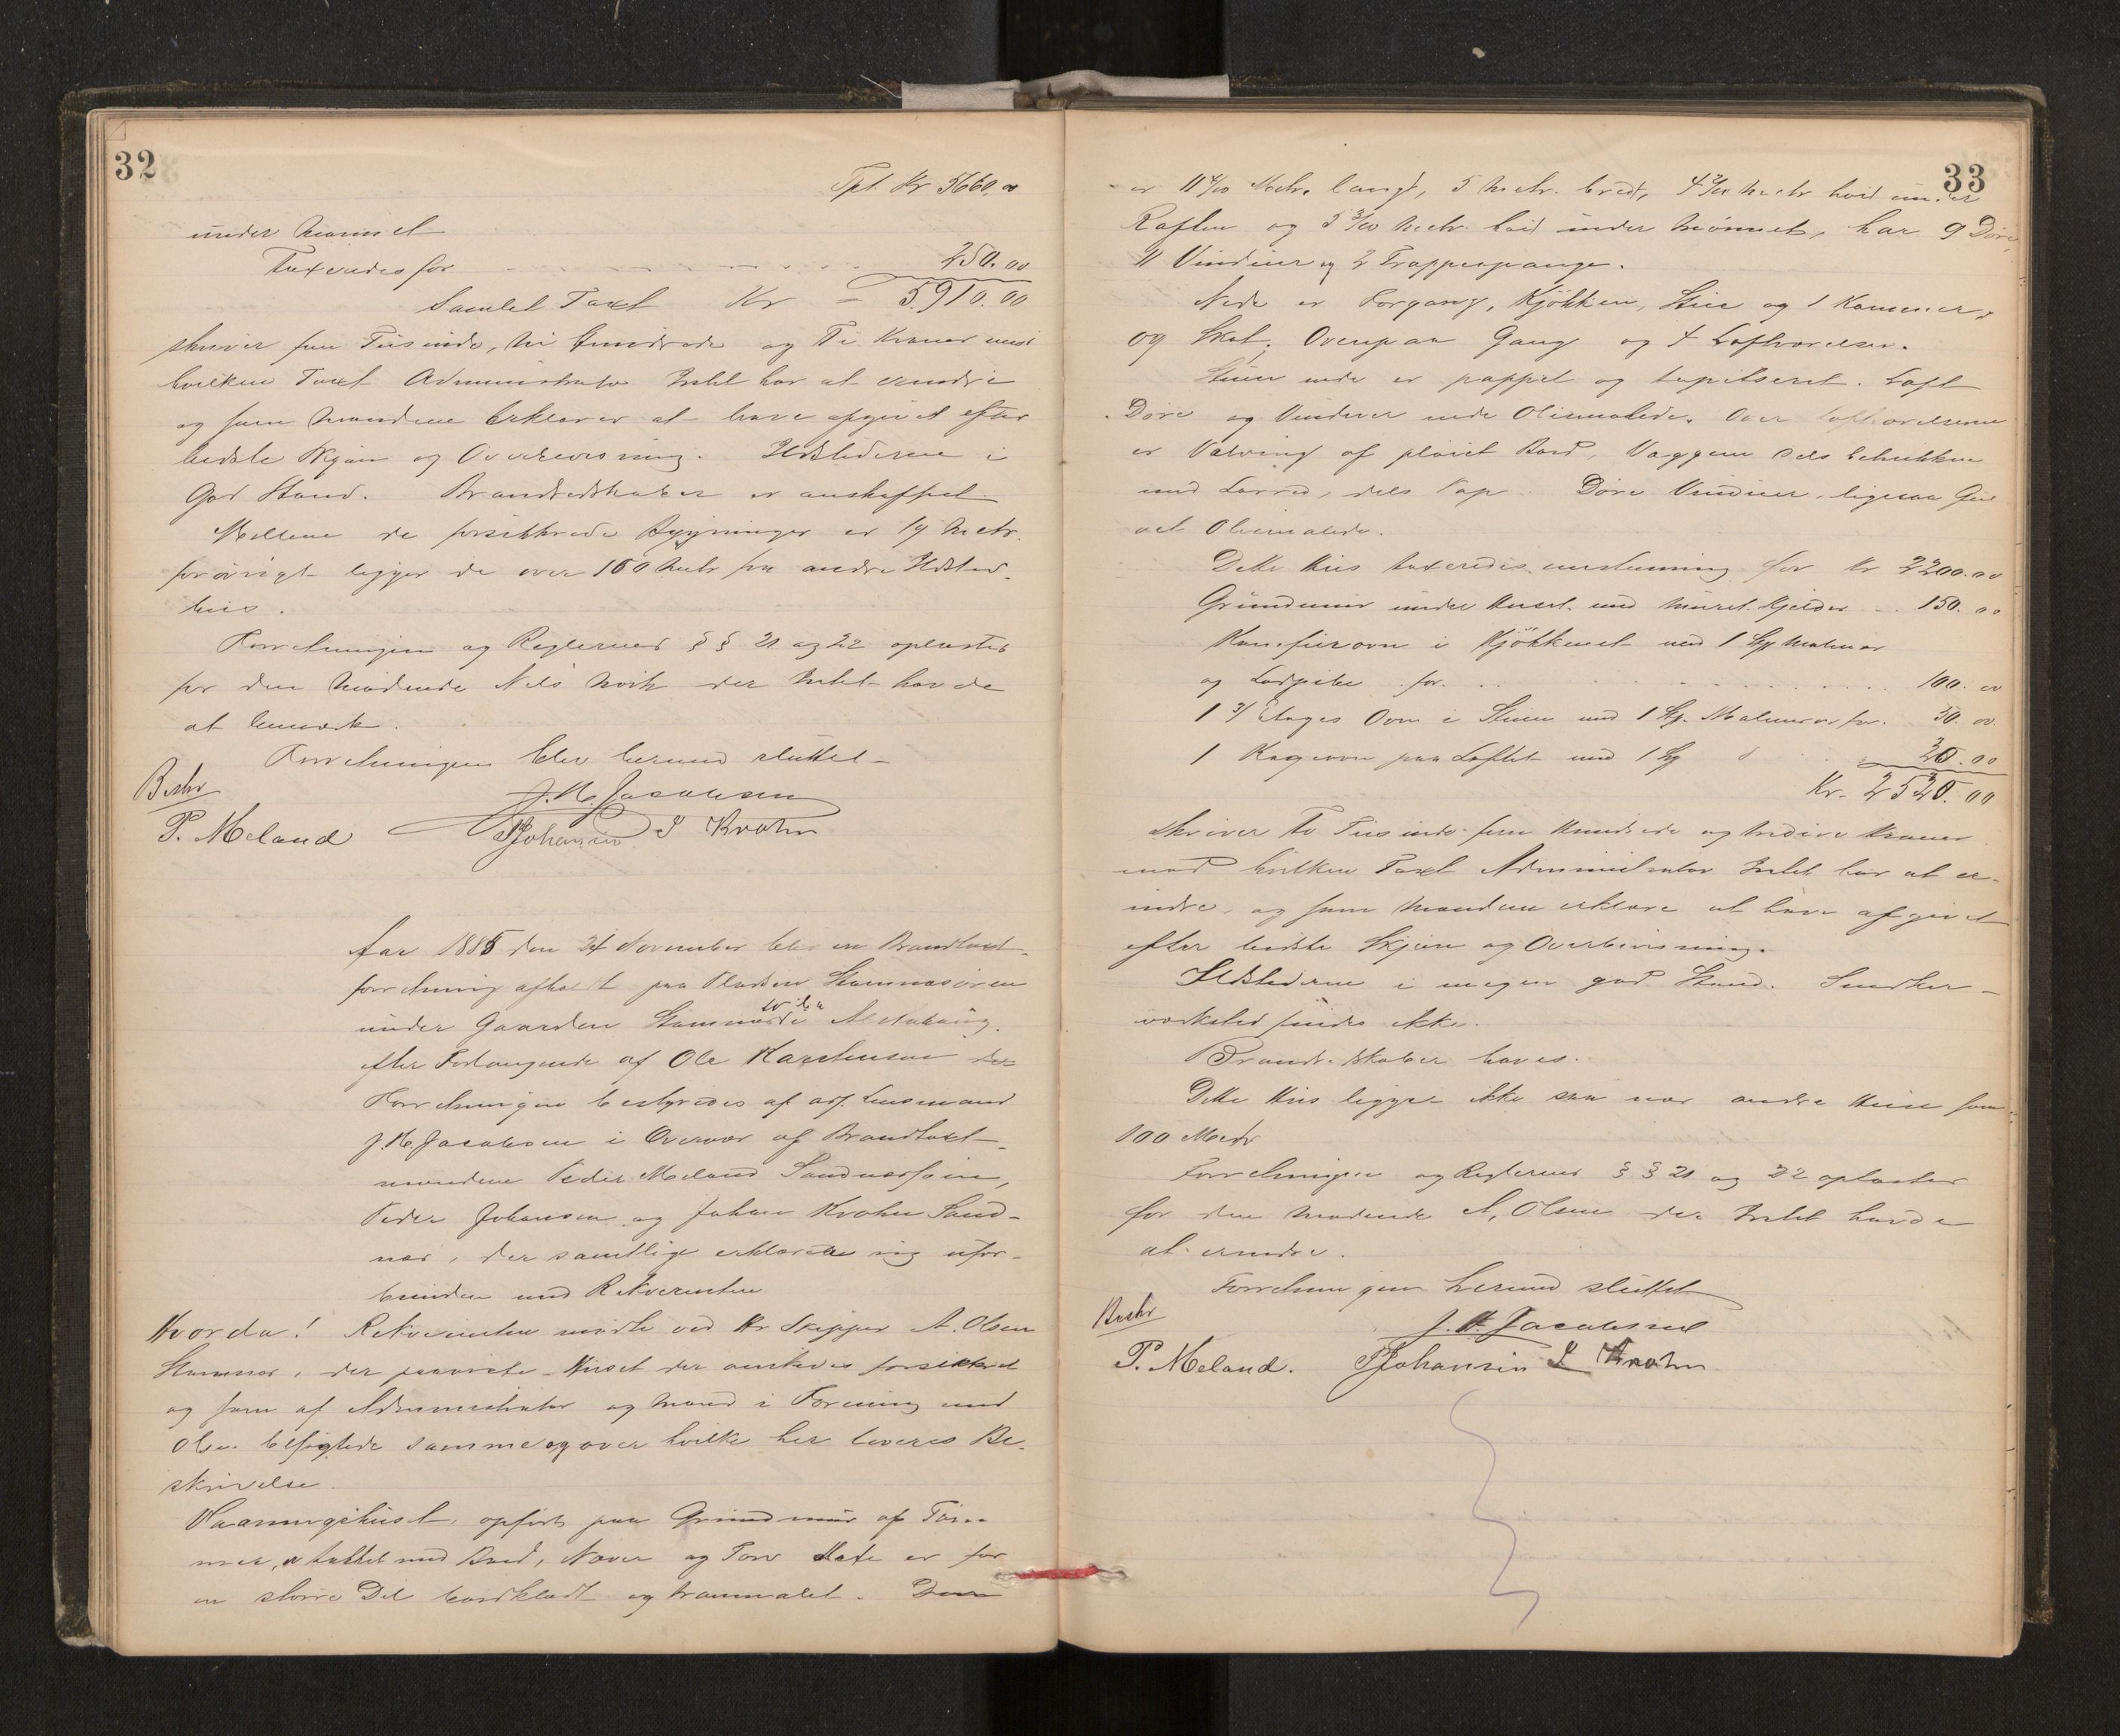 32
Tpt. Kr 5660.00
under Mønnet
Taxeredes for 250.00
Samlet Taxt Kr = 5910.00
skriver fem Tusinde, ni Hundrede og Ti Kroner mod
hvilken Taxt Administrator Intet har at erindre
og som Mændene erklærer at have afgivet efter
bedste Skjøn og Overbevisning. Ildstederne i
God Stand. Brandredskaber er anskaffet
Mellem de forsikkrede Bygninger er 19 Metr.
forøvrigt ligger de over 100 Metr fra andre Ildsted-
hus.
Forretningen og Reglernes § § 21 og 22 oplæstes
for den mødende Nils der Intet havde
at bemærke.
Forretningen blev hermed sluttet
Beskr
J. H. Jacobsen
P. Meland PJohansen J Krohn
Aar 1885 den 24 November blev en Brandtaxt-
forretning afholdt paa Pladsen Stamnesøren
under Gaarden Stamnes i Alstahaug.
efter Forlangende af Ole Karstensen
Forretningen bestyredes af Lensmand
J. H. Jacobsen i Overvær af Brandtaxt-
mændene Peder Meland Sandnessjøen,
Peder Johansen og Johan Krohn Sand-
nes, der samtlige erklærede sig ufor-
bunden med Rekvirenten
Hvorda! Rekvirenten mødte ved Hr Skipper A. Olsen
Stamnes, der paaviste Huset der ønskedes forsikkret
og som af Administrator og Mænd i Forening med
Olsen besigtede samme og over hvilke her leveres Be-
skrivelse.
Vaaningshuset, opført paa Grundmur af Tøm-
mer, er tækket med Bord, Næver og Torv er for
en større Del bordklædt og
33
er 11 4/10 Metr. langt, 5 Metr. bredt, 4 Metr høid under
Raften og 5 3/10 Metr. høid under Mønnet, har 9 Døre,
11 Vinduer og 2 Trappeopgange.
Nede er Forgang, Kjøkken, Stue og 1 Kammer,
og Skot. Ovenpaa Gang og 4 Loftværelser.
Stuen nede er pappet og tapetseret. Loft
Døre og Vinduer nede Oliemalede. Over Loftværelserne
er Hvælving af pløiet Bord, Væggene dels betrukken
med Lærred, dels Pap. Døre Vinduer, ligesaa Gul
vet Oliemalede.
Dette Hus taxeredes for Kr 2200.00
Grundmur under Huset med muret Kjelder 150.00
Komfurovn i Kjøkkenet med 1 Malmrør
og Ladpibe for 100.00
1 3/ Etages Ovn i Stuen med 1 Malmrør for 50.00
1 Kagovn paa Loftet med 1 30.00
Kr. 2530.00
Skriver To Tusinde fem Hundrede og tredive Kroner
mod hvilken Taxt Administrator Intet har at er-
indre, og som Mændene erklære at have afgivet
efter bedste Skjøn og Overbevisning.
Ildstederne i megen god Stand. Snedker-
værksted findes ikke.
Brandredskaber haves.
Dette Hus ligger ikke saa nær andre Huse som
100 Metr
Forretningen og Reglernes § § 21 og 22 oplæstes
for den mødende A. Olsen der Intet havde
at erindre.
Forretningen hermed sluttet
Beskr
J. H. Jacobsen
P. Meland. PJohansen J Krohn